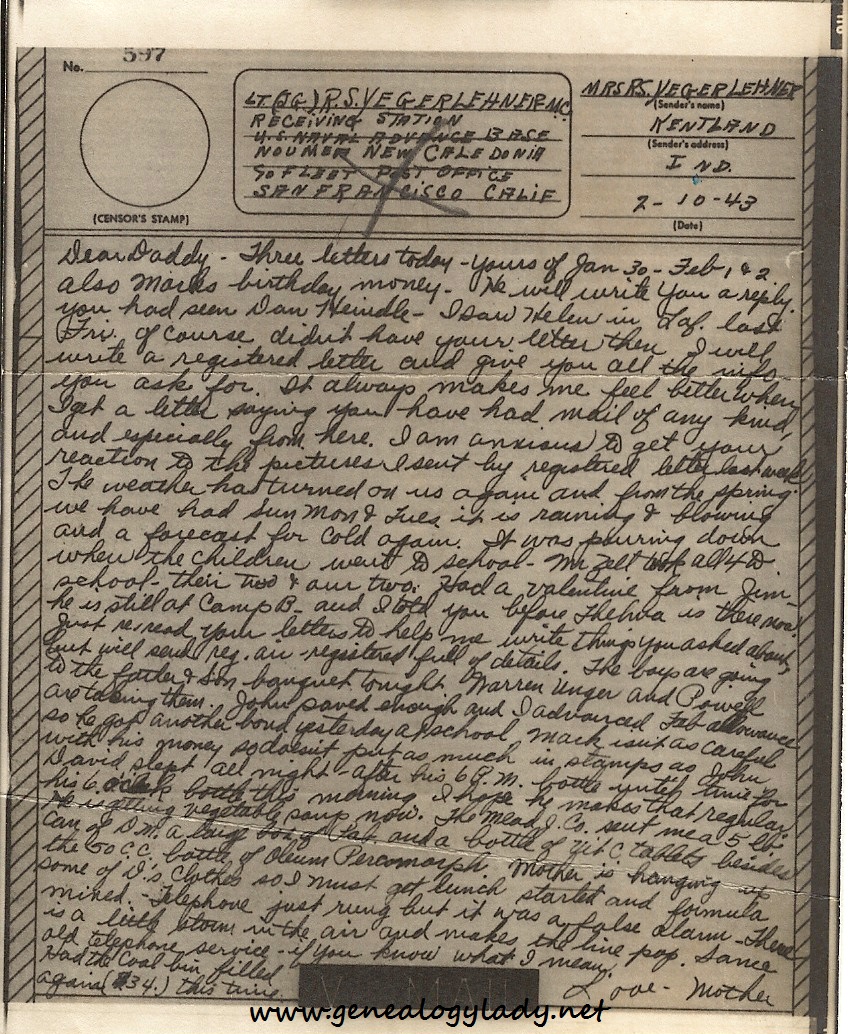 No. 597
(CENSOR'S STAMP)
LT. (JG) R.S. VEGERLEHNER M.C.
RECEIVING STATION
U.S. NAVAL ADVANCE BASE
NOUMEA NEW CALEDONIA
℅ FLEET POST OFFICE
SAN FRANCISCO CALIF
MRS R.S. VEGERLEHNER
(Sender's name)
KENTLAND
(Sender's address)
IND.
2-10-43
(Date)
Dear Daddy - Three letters today - yours of Jan 30 - Feb 1 & 2
also Marks birthday money - He will write you a reply.
you had seen Dan Heindle - I saw Helen in Laf. last
Fri. of course didn't have your letter then. I will
write a registered letter and give you all the info
you ask for. It always makes me feel better when
I get a letter saying you have had mail of any kind,
and especially from here. I am anxious to get your
reaction to the pictures I sent by registered letter last week
The weather has turned on us again and from the spring
we have had Sun Mon & Tues. it is raining & blowing
and a forecast for cold again. It was pouring down
when the children went to school - Mr Zell took all 4 to
school - their two & our two. Had a valentine from Jim -
he is still at Camp B - and I told you before Thelma is there now.
Just re-read your letters to help me write things you asked about,
but will send reg. air registered full of details. The boys are going
to the father & Son banquet tonight. Warren Unger and Powell
are taking them. John saved enough and I advanced Feb allowance
so he got another bond yesterday at school. Mark isn't as careful
with his money so doesn't put as much in stamps as John
David slept all night - after his 6 P.M. bottle until time for
his 6 o'clk bottle this morning. I hope he makes that regular.
He is getting vegetable soup now. The Mead J. Co. sent me a 5 lb
can of D.M. a large box of Pab. and a bottle of Vit C tablets besides
the 50 C.C. bottle of Oleum Percomorph. Mother is hanging up
some of D's clothes so I must get lunch started and formula
mixed. - Telephone just rung but it was a false alarm - There
is a little storm in the air and makes the line pop. Same
old telephone service - if you know what I mean.
Had the coal bin filled
again ($34.) this time.
Love - Mother
V - MAIL
www.genealogylady.net